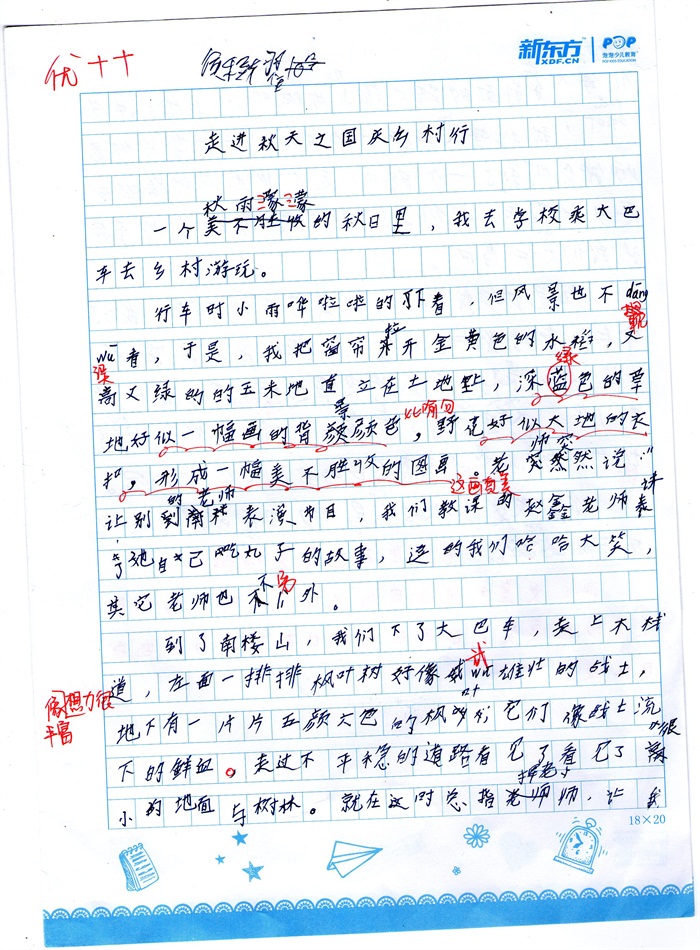 优++
新东方
XDF.CN
POP
泡泡少儿教育
POP KIDS EDUCATION
走进秋天之国庆乡村行
秋雨濛濛
一个美不胜收的秋日里，我去学校乘大巴
车去乡村游玩。
行车时小雨哗啦啦的下着，但风景也不dāng
wù着，于是，我把窗帘拉开金黄色的水稻，又
高又绿的的玉米地直立在土地垫，深蓝色的草
绿
地好似一幅画的背景颜色，野花好似大地的衣
比喻句
扣，形成一幅美不胜收的图画。老师突然说
这画真美
让别的老师表演节目，我们教课的赵鑫老师表讲
了她自己吃丸子的故事，逗的我们哈哈大笑，
其它老师也不另外。
到了南楼山，我们下了大巴车，走上木栈
道，左面一排排枫叶树好像威wǔ雄壮的战士，
武
想象力很丰富
地下有一片片五颜六色的枫叶它们像战士流
下的鲜血。走过不平稳的道路看见了看见了
小的地面与树林。就在这时总指老师，让我
18×20